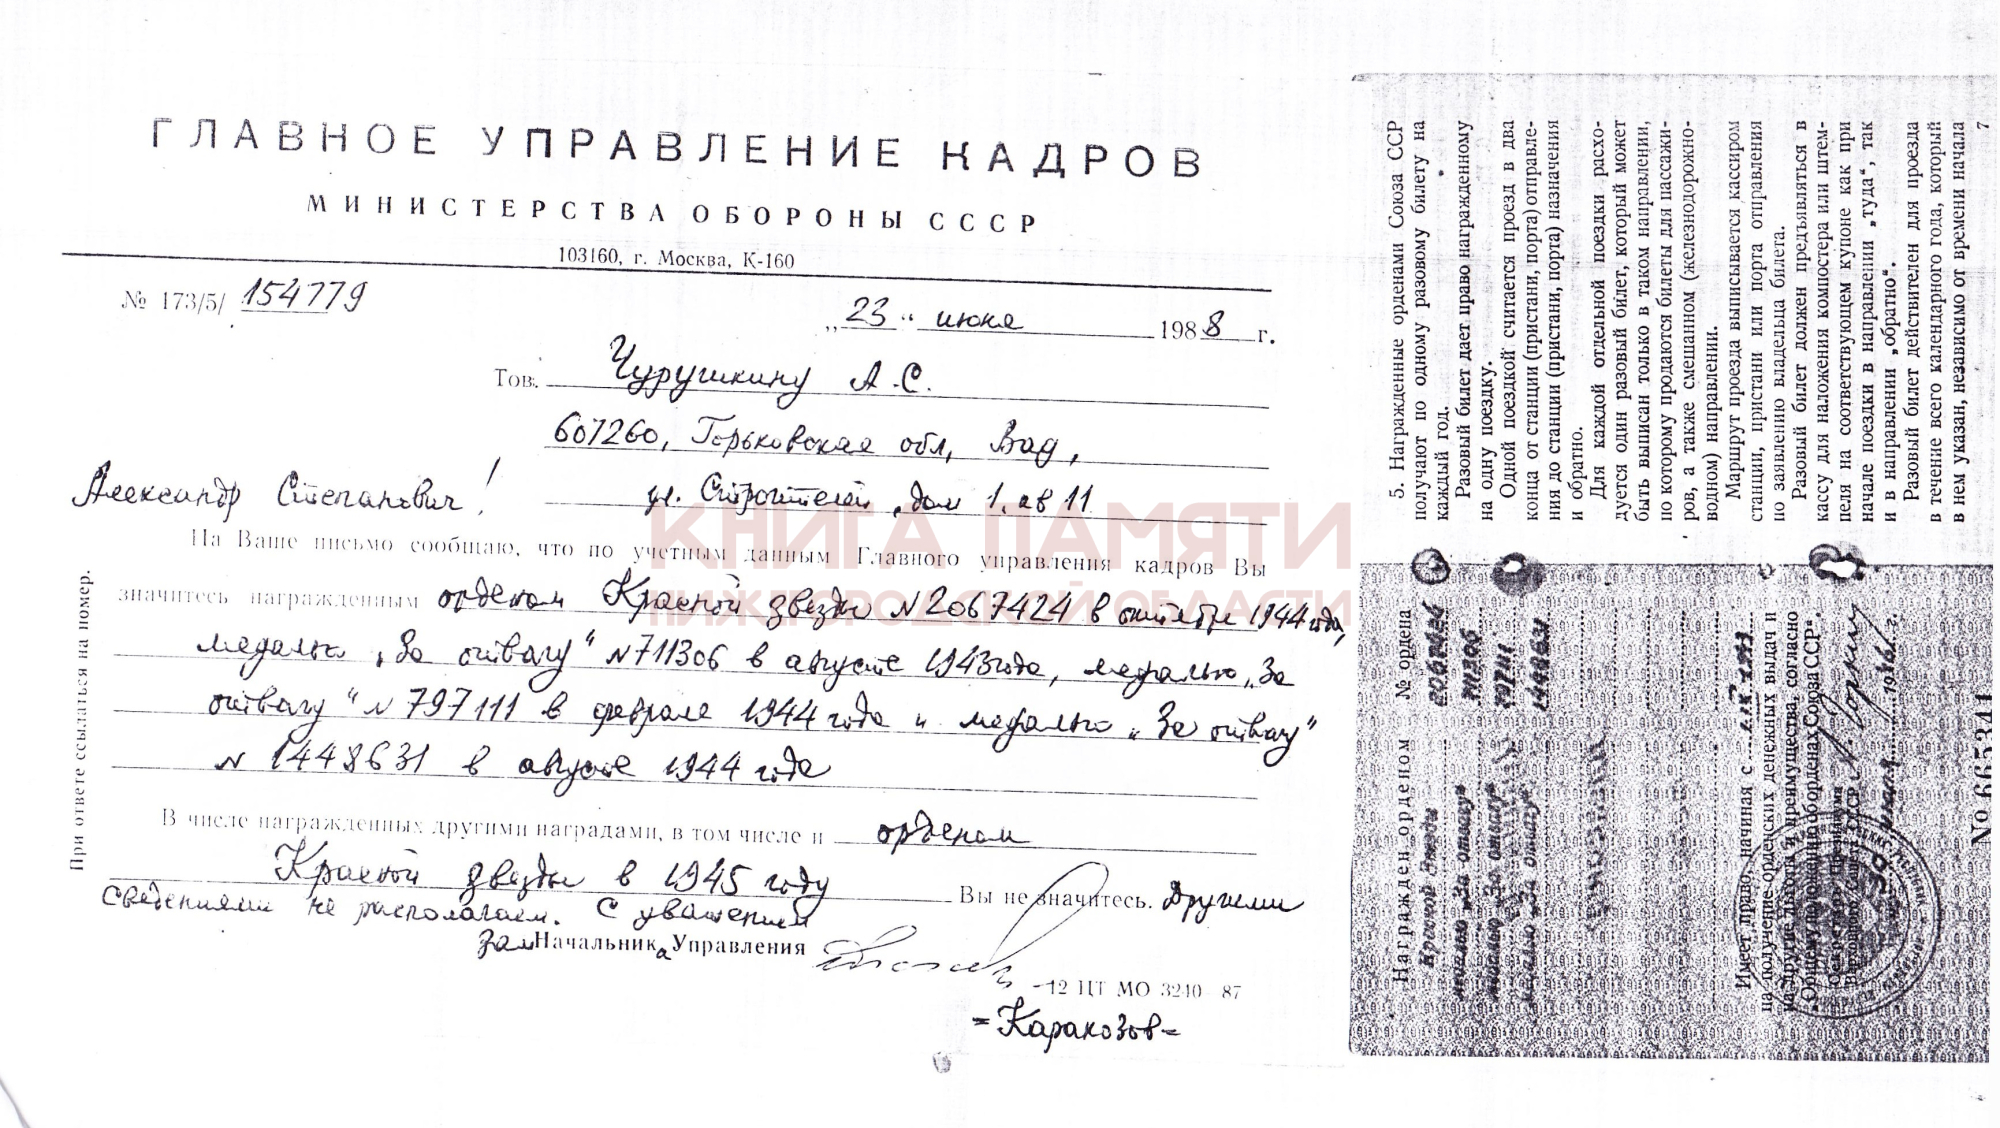 ГЛАВНОЕ УПРАВЛЕНИЕ КАДРОВ
МИНИСТЕРСТВА ОБОРОНЫ СССР
103160, г. Москва, К-160
№ 173/5/ 154779
„ 23 " июня 1988 г.
Тов. Чурушкину А.С.
607260, Горьковская обл, Вад,
ул. Строителей, дом 1, кв 11
Александр Степанович!
На Ваше письмо сообщаю, что по учетным данным Главного управления кадров Вы
значитесь награжденным орденом Красной звезды N 2067424 в октябре 1944 года,
медалью „За отвагу" N 711306 в августе 1943 года, медалью „За
отвагу" N 797111 в феврале 1944 года и медалью „За отвагу"
N 1448631 в августе 1944 года
В числе награжденных другими наградами, в том числе и орденом
Красной звезды в 1945 году Вы не значитесь. Другими
сведениями не располагаем. С уважением
Зам Начальника Управления
12 ЦТ МО 3240—87
-Каракозов-
При ответе ссылаться на номер.
КНИГА ПАМЯТИ
НИЖЕГОРОДСКОЙ ОБЛАСТИ
5. Награжденные орденами Союза ССР
получают по одному разовому билету на
каждый год.
Разовый билет дает право награжденному
на одну поездку.
Одной поездкой считается проезд в два
конца от станции (пристани, порта) отправле-
ния до станции (пристани, порта) назначения
и обратно.
Для каждой отдельной поездки расхо-
дуется один разовый билет, который может
быть выписан только в таком направлении,
по которому продаются билеты для пассажи-
ров, а также смешанном (железнодорожно-
водном) направлении.
Маршрут проезда выписывается кассиром
станции, пристани или порта отправления
по заявлению владельца билета.
Разовый билет должен предъявляться в
кассу для наложения компостера или штем-
пеля на соответствующем купоне как при
начале поездки в направлении „туда", так
и в направлении „обратно".
Разовый билет действителен для проезда
в течение всего календарного года, который
в нем указан, независимо от времени начала
7
Награжден орденом № ордена
Красной Звезды 2067424
медалью „За отвагу" 711306
медалью „За отвагу" 797111
медалью „За отвагу" 1448631
Имеет право, начиная с
на получение орденских денежных выдач и
на другие льготы и преимущества, согласно
„Общему положению об орденах Союза ССР".
Секретарь Президиума
Верховного Совета СССР
№ 665341